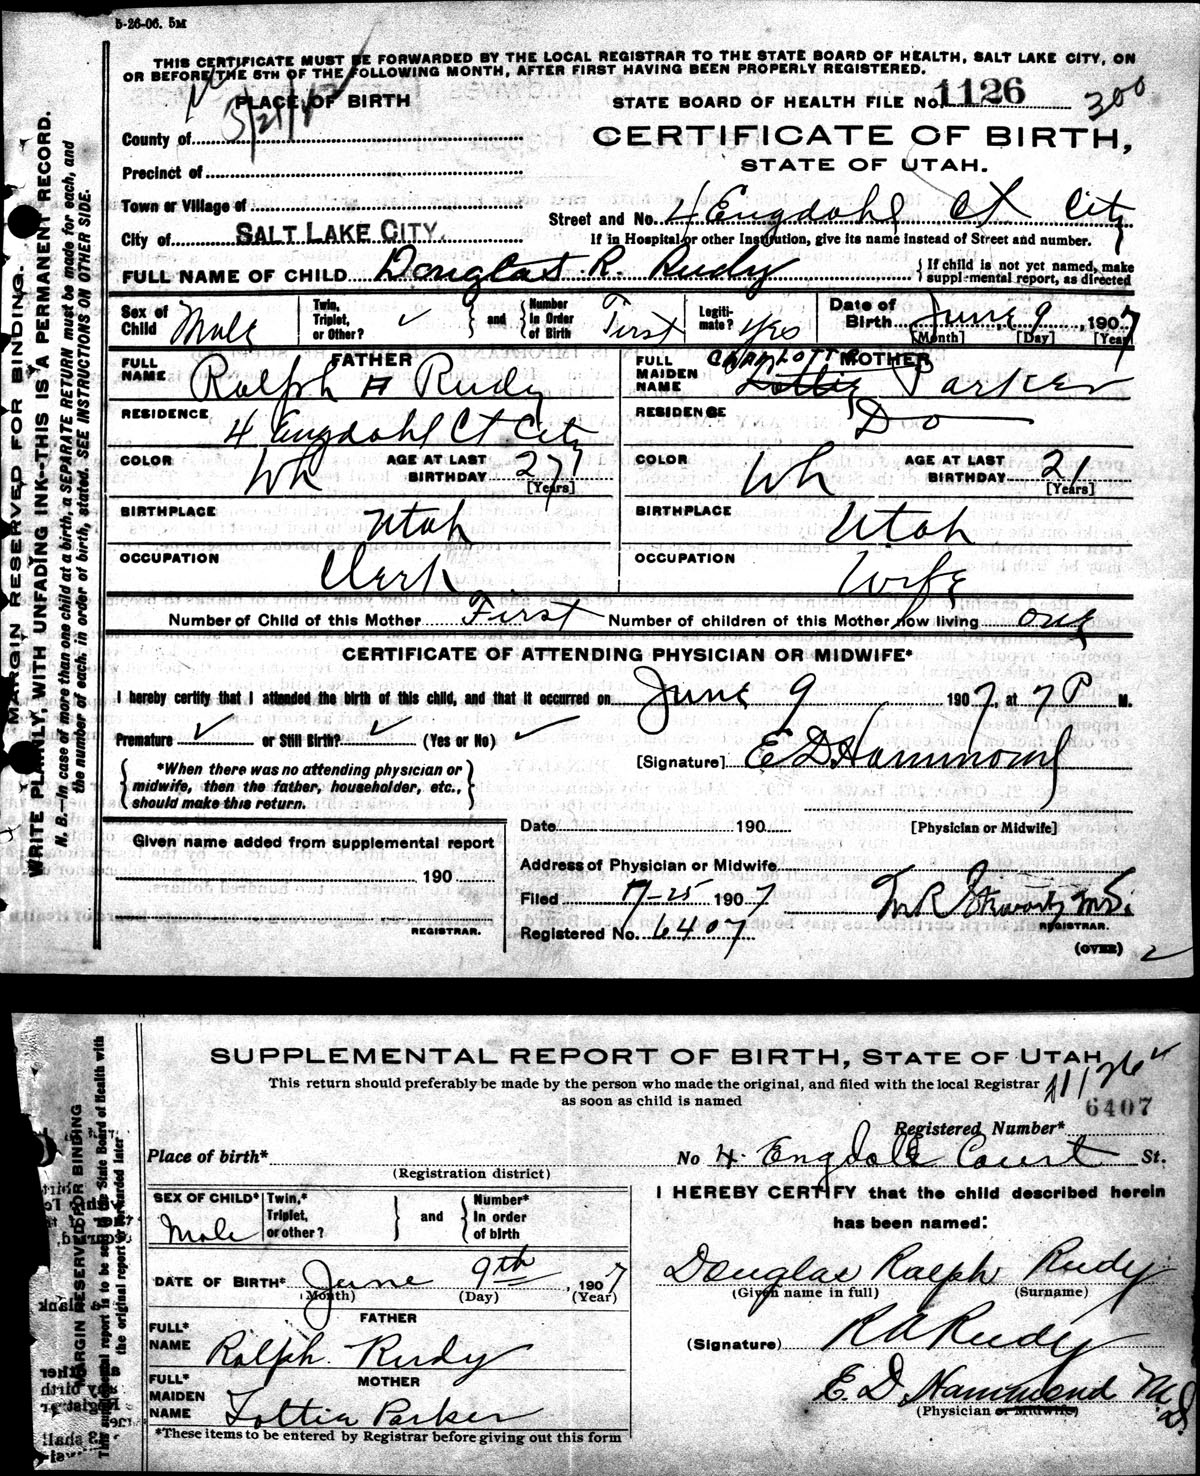 5-26-06. 5M
THIS CERTIFICATE MUST BE FORWARDED BY THE LOCAL REGISTRAR TO THE STATE BOARD OF HEALTH, SALT LAKE CITY, ON
OR BEFORE THE 5TH OF THE FOLLOWING MONTH, AFTER FIRST HAVING BEEN PROPERLY REGISTERED.
PLACE OF BIRTH
STATE BOARD OF HEALTH FILE No. 1126 300
County of
CERTIFICATE OF BIRTH,
STATE OF UTAH.
Precinct of
Town or Village of
Street and No. 4 Engdahl Ct City
City of SALT LAKE CITY.
If in Hospital or other Institution, give its name instead of Street and number.
FULL NAME OF CHILD Douglas R. Rudy
{If child is not yet named, make supplemental report, as directed
Sex of Child Male
Twin, Triplet, or Other? ✓ } and { Number In Order of Birth First
Legitimate? Yes
Date of Birth June 9, 1907
[Month] [Day] [Year]
FATHER
FULL NAME Ralph A Rudy
MOTHER
FULL MAIDEN NAME CHARLOTTE Lottie Parker
RESIDENCE 4 Engdahl Ct City
RESIDENCE Do
COLOR Wh AGE AT LAST BIRTHDAY 27 [Years]
COLOR Wh AGE AT LAST BIRTHDAY 21 [Years]
BIRTHPLACE Utah
BIRTHPLACE Utah
OCCUPATION Clerk
OCCUPATION Wife
Number of Child of this Mother First Number of children of this Mother now living one
CERTIFICATE OF ATTENDING PHYSICIAN OR MIDWIFE*
I hereby certify that I attended the birth of this child, and that it occurred on June 9 1907, at 7 P M.
Premature ✓ or Still Birth? ✓ (Yes or No) ✓
[Signature] E D Hammond
{*When there was no attending physician or midwife, then the father, householder, etc., should make this return.}
[Physician or Midwife]
Date 190
Given name added from supplemental report
190
REGISTRAR.
Address of Physician or Midwife
Filed 7-25 1907
REGISTRAR.
Registered No. 6407
(OVER) 2
MARGIN RESERVED FOR BINDING.
WRITE PLAINLY, WITH UNFADING INK--THIS IS A PERMANENT RECORD.
N. B.--In case of more than one child at a birth, a SEPARATE RETURN must be made for each, and
the number of each, in order of birth, stated. SEE INSTRUCTIONS ON OTHER SIDE.
SUPPLEMENTAL REPORT OF BIRTH, STATE OF UTAH
This return should preferably be made by the person who made the original, and filed with the local Registrar
as soon as child is named
1126
6407
Registered Number*
Place of birth* No 4 Engdale Court St.
(Registration district)
SEX OF CHILD* Male
Twin,* Triplet, or other? } and { Number* In order of birth
I HEREBY CERTIFY that the child described herein
has been named:
DATE OF BIRTH* June 9th, 1907
(Month) (Day) (Year)
Douglas Ralph Rudy
(Given name in full) (Surname)
FATHER
FULL* NAME Ralph Rudy
(Signature) R A Rudy
MOTHER
FULL* MAIDEN NAME Lottie Parker
E. D. Hammond M.D.
(Physician or Midwife)
*These items to be entered by Registrar before giving out this form
MARGIN RESERVED FOR BINDING
the original report or forwarded later